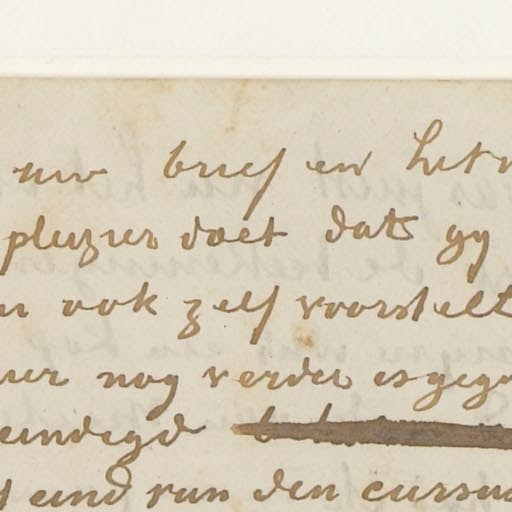 uw brief en het
pleizier doet dat gy
ook zelf voorstelt
nog verder is geg
eindigd
eind van den cursus